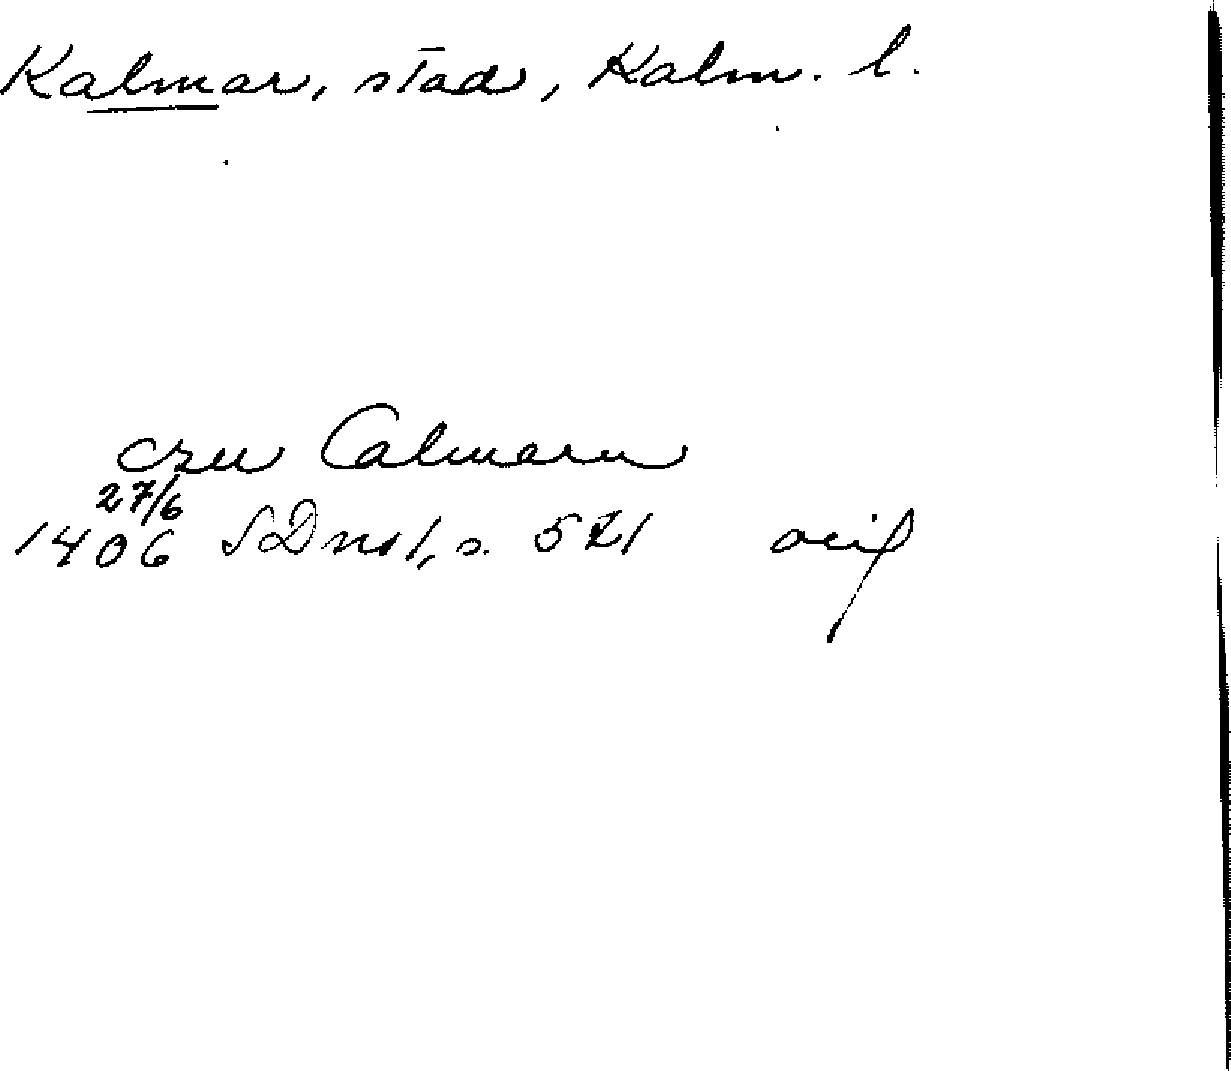 Kalmar, stad, Kalm. l.
czu Calmarn
27/6
1406 SDns 1, s. 521 avs